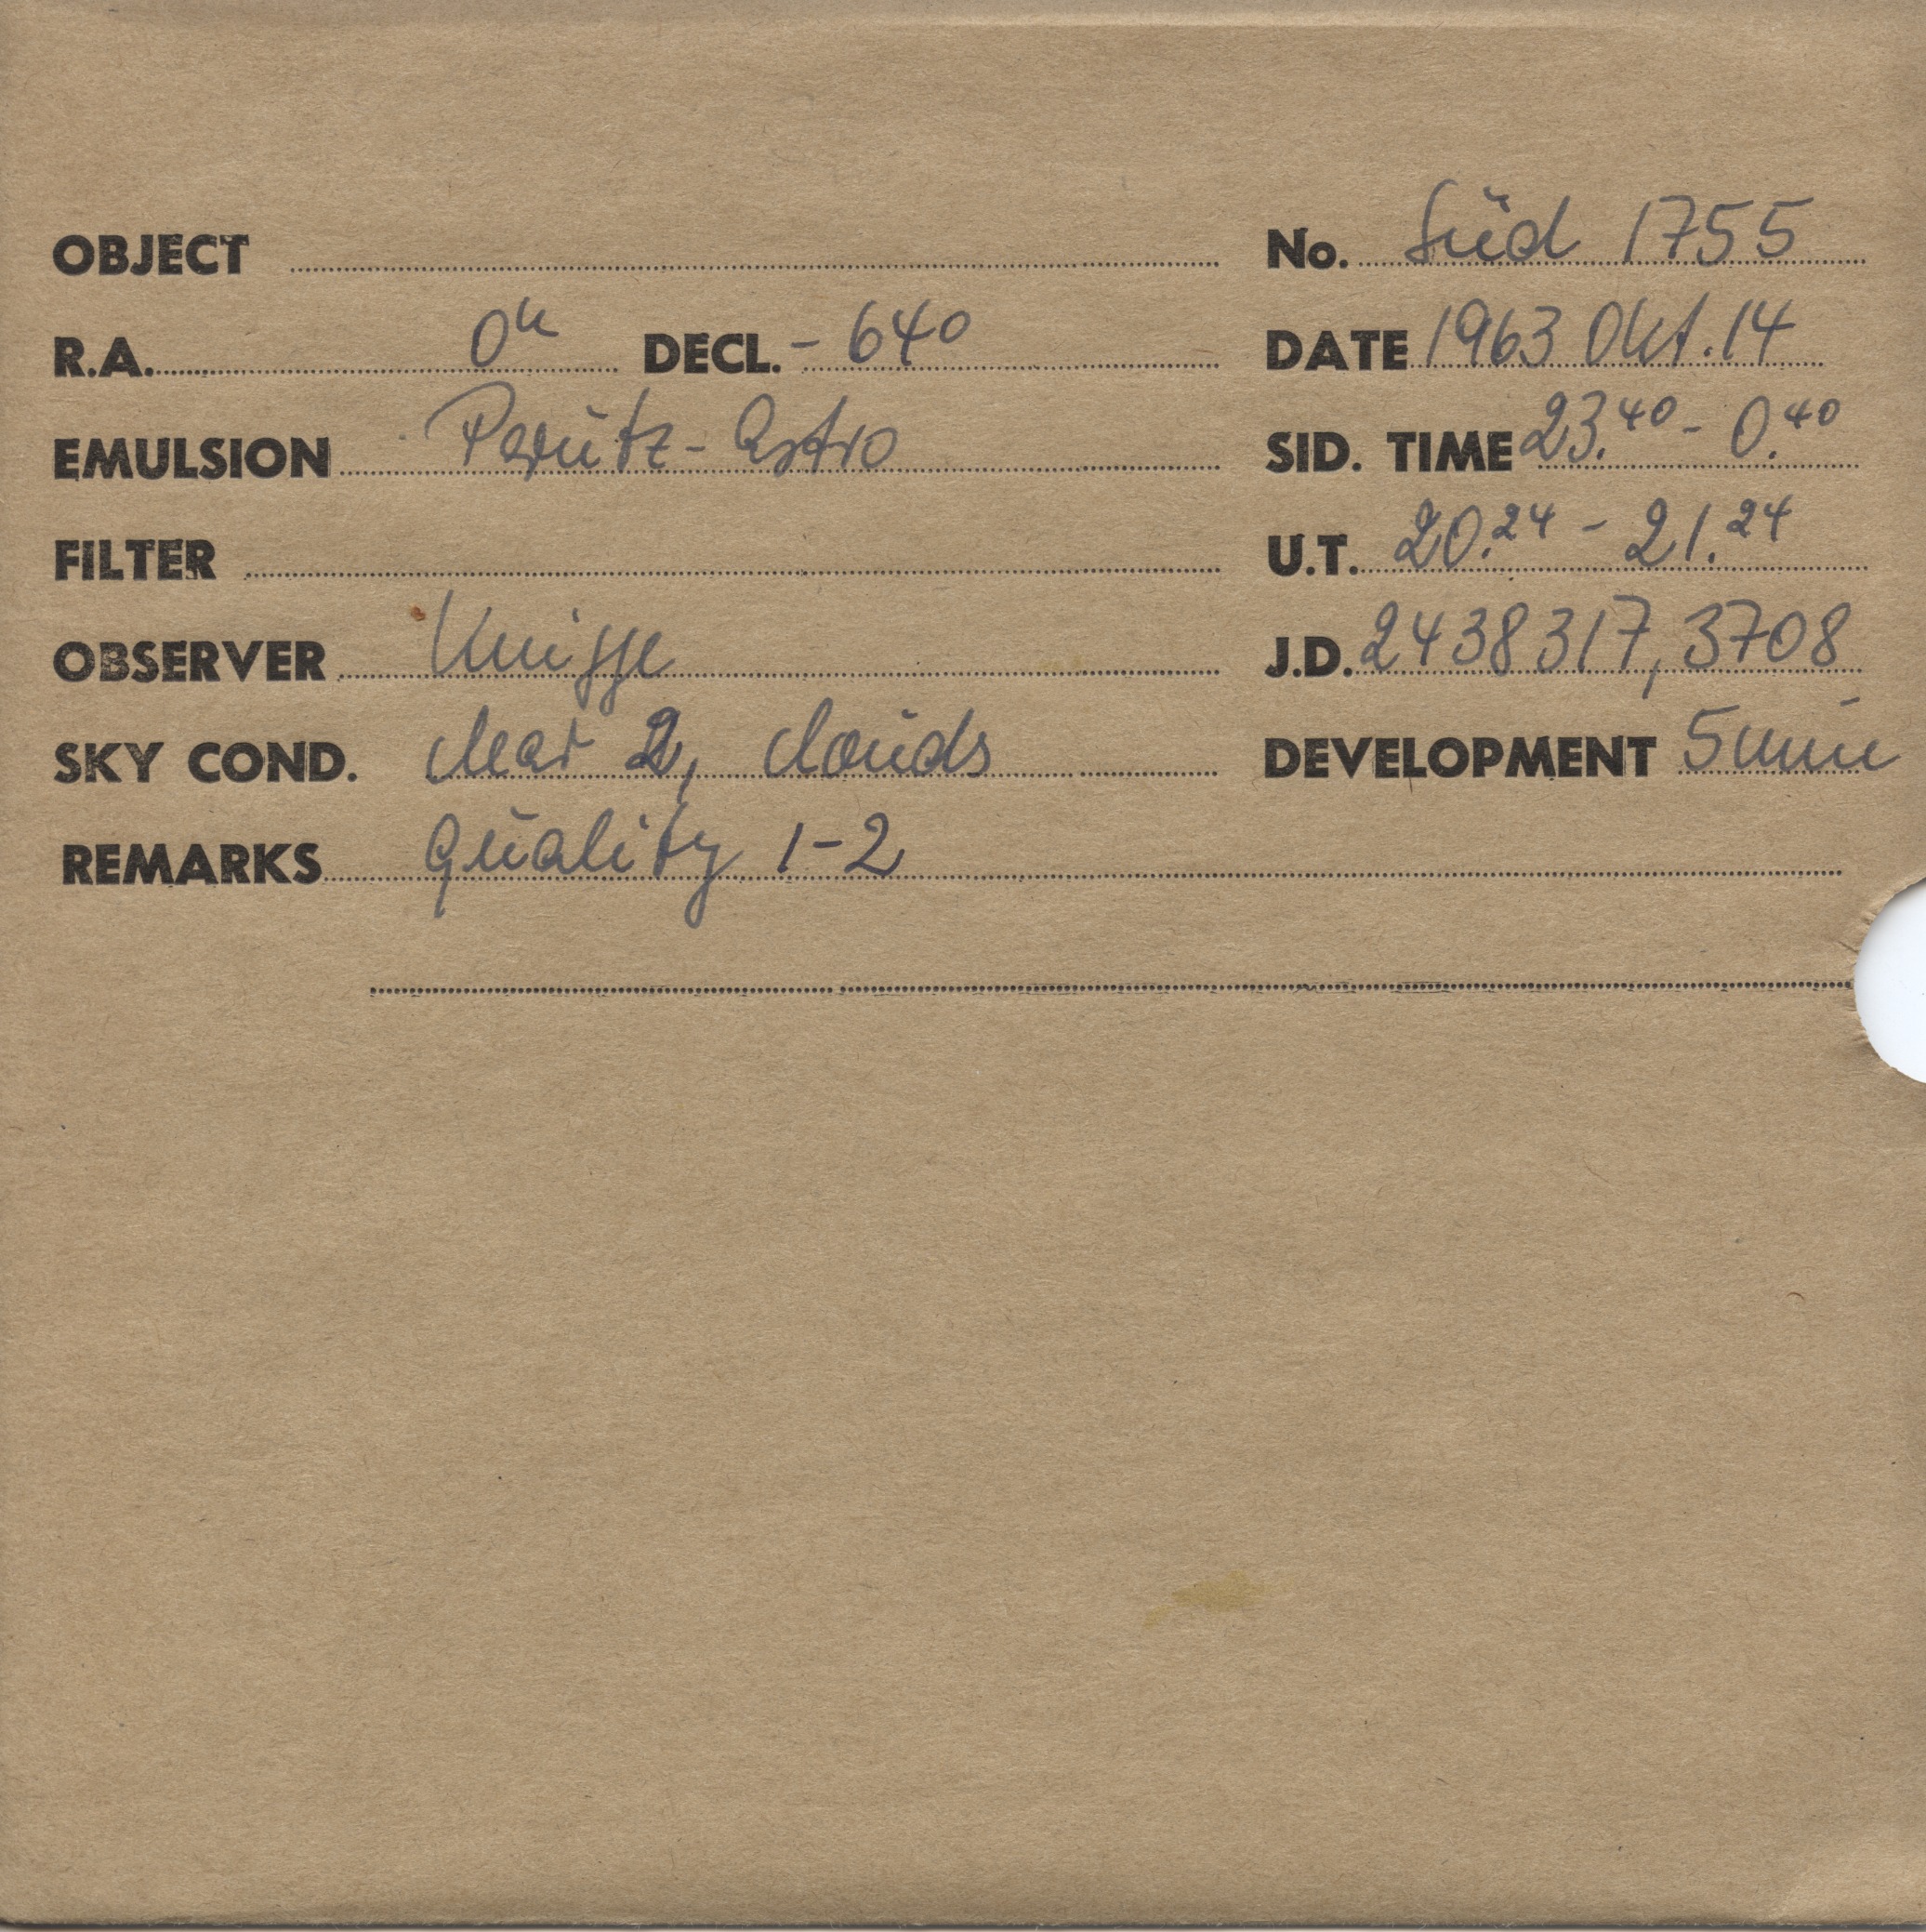 OBJECT No. Süd 1755
R.A. 0h DECL. - 64° DATE 1963 Okt. 14
EMULSION Perutz-Astro SID. TIME 23.40 - 0.40
FILTER U.T. 20.24 - 21.24
OBSERVER Knigge J.D. 2438317,3708
SKY COND. clear 2, clouds DEVELOPMENT 5 min
REMARKS Quality 1-2